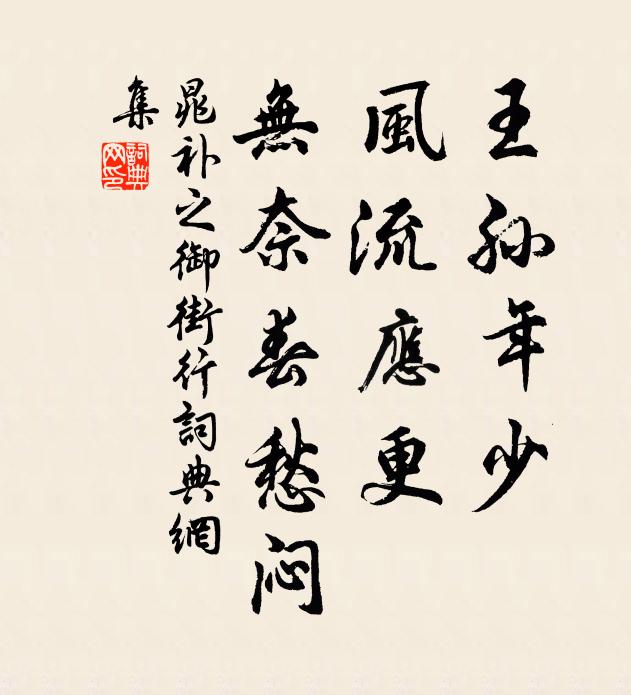 王孙年少
風流應更
無奈春愁闷
晁补之御街行詞典網
集
詞典網印